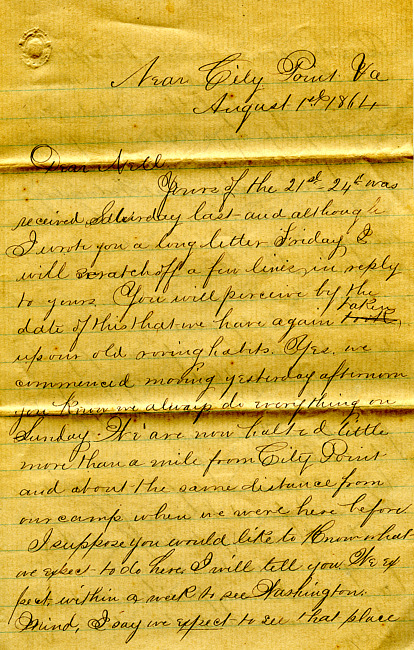 Near City Point Va
August 1st 1864
Dear Nell
Yours of the 21st - 24th was
received Saturday last and although
I wrote you a long letter Friday I
will scratch off a few lines in reply
to yours. You will perceive by the
date of this that we have again took taken
up our old roving habits. Yes, we
commenced moving yesterday afternoon
you know we always do everything on
Sunday. We are now halted little
more than a mile from City Point
and about the same distance from
our camp when we were here before
I suppose you would like to know what
we expect to do here, I will tell you. We ex
pect, within a week to see Washington.
Mind, I say we expect to see that place